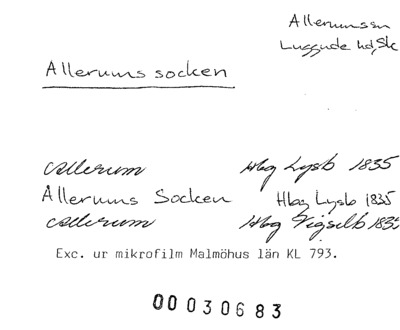 Allerums sn
Luggude hd, Sk
Allerums socken
Allerum Hbg Lysb 1835
Allerums Socken Hbg Lysb 1835
Allerum Hbg Vigselb 1835
Exc. ur mikrofilm Malmöhus län KL 793.
00030683